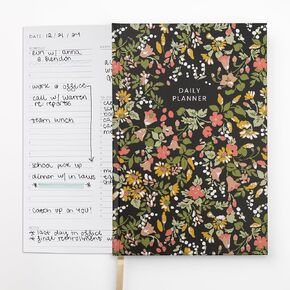 DATE 12/21/24
run w/ anna
& brendon
work @ office
call w/ warren
re reports
team lunch
school pick up
dinner w/ in laws
catch up on YOU!
last day in office
final
DAILY
PLANNER